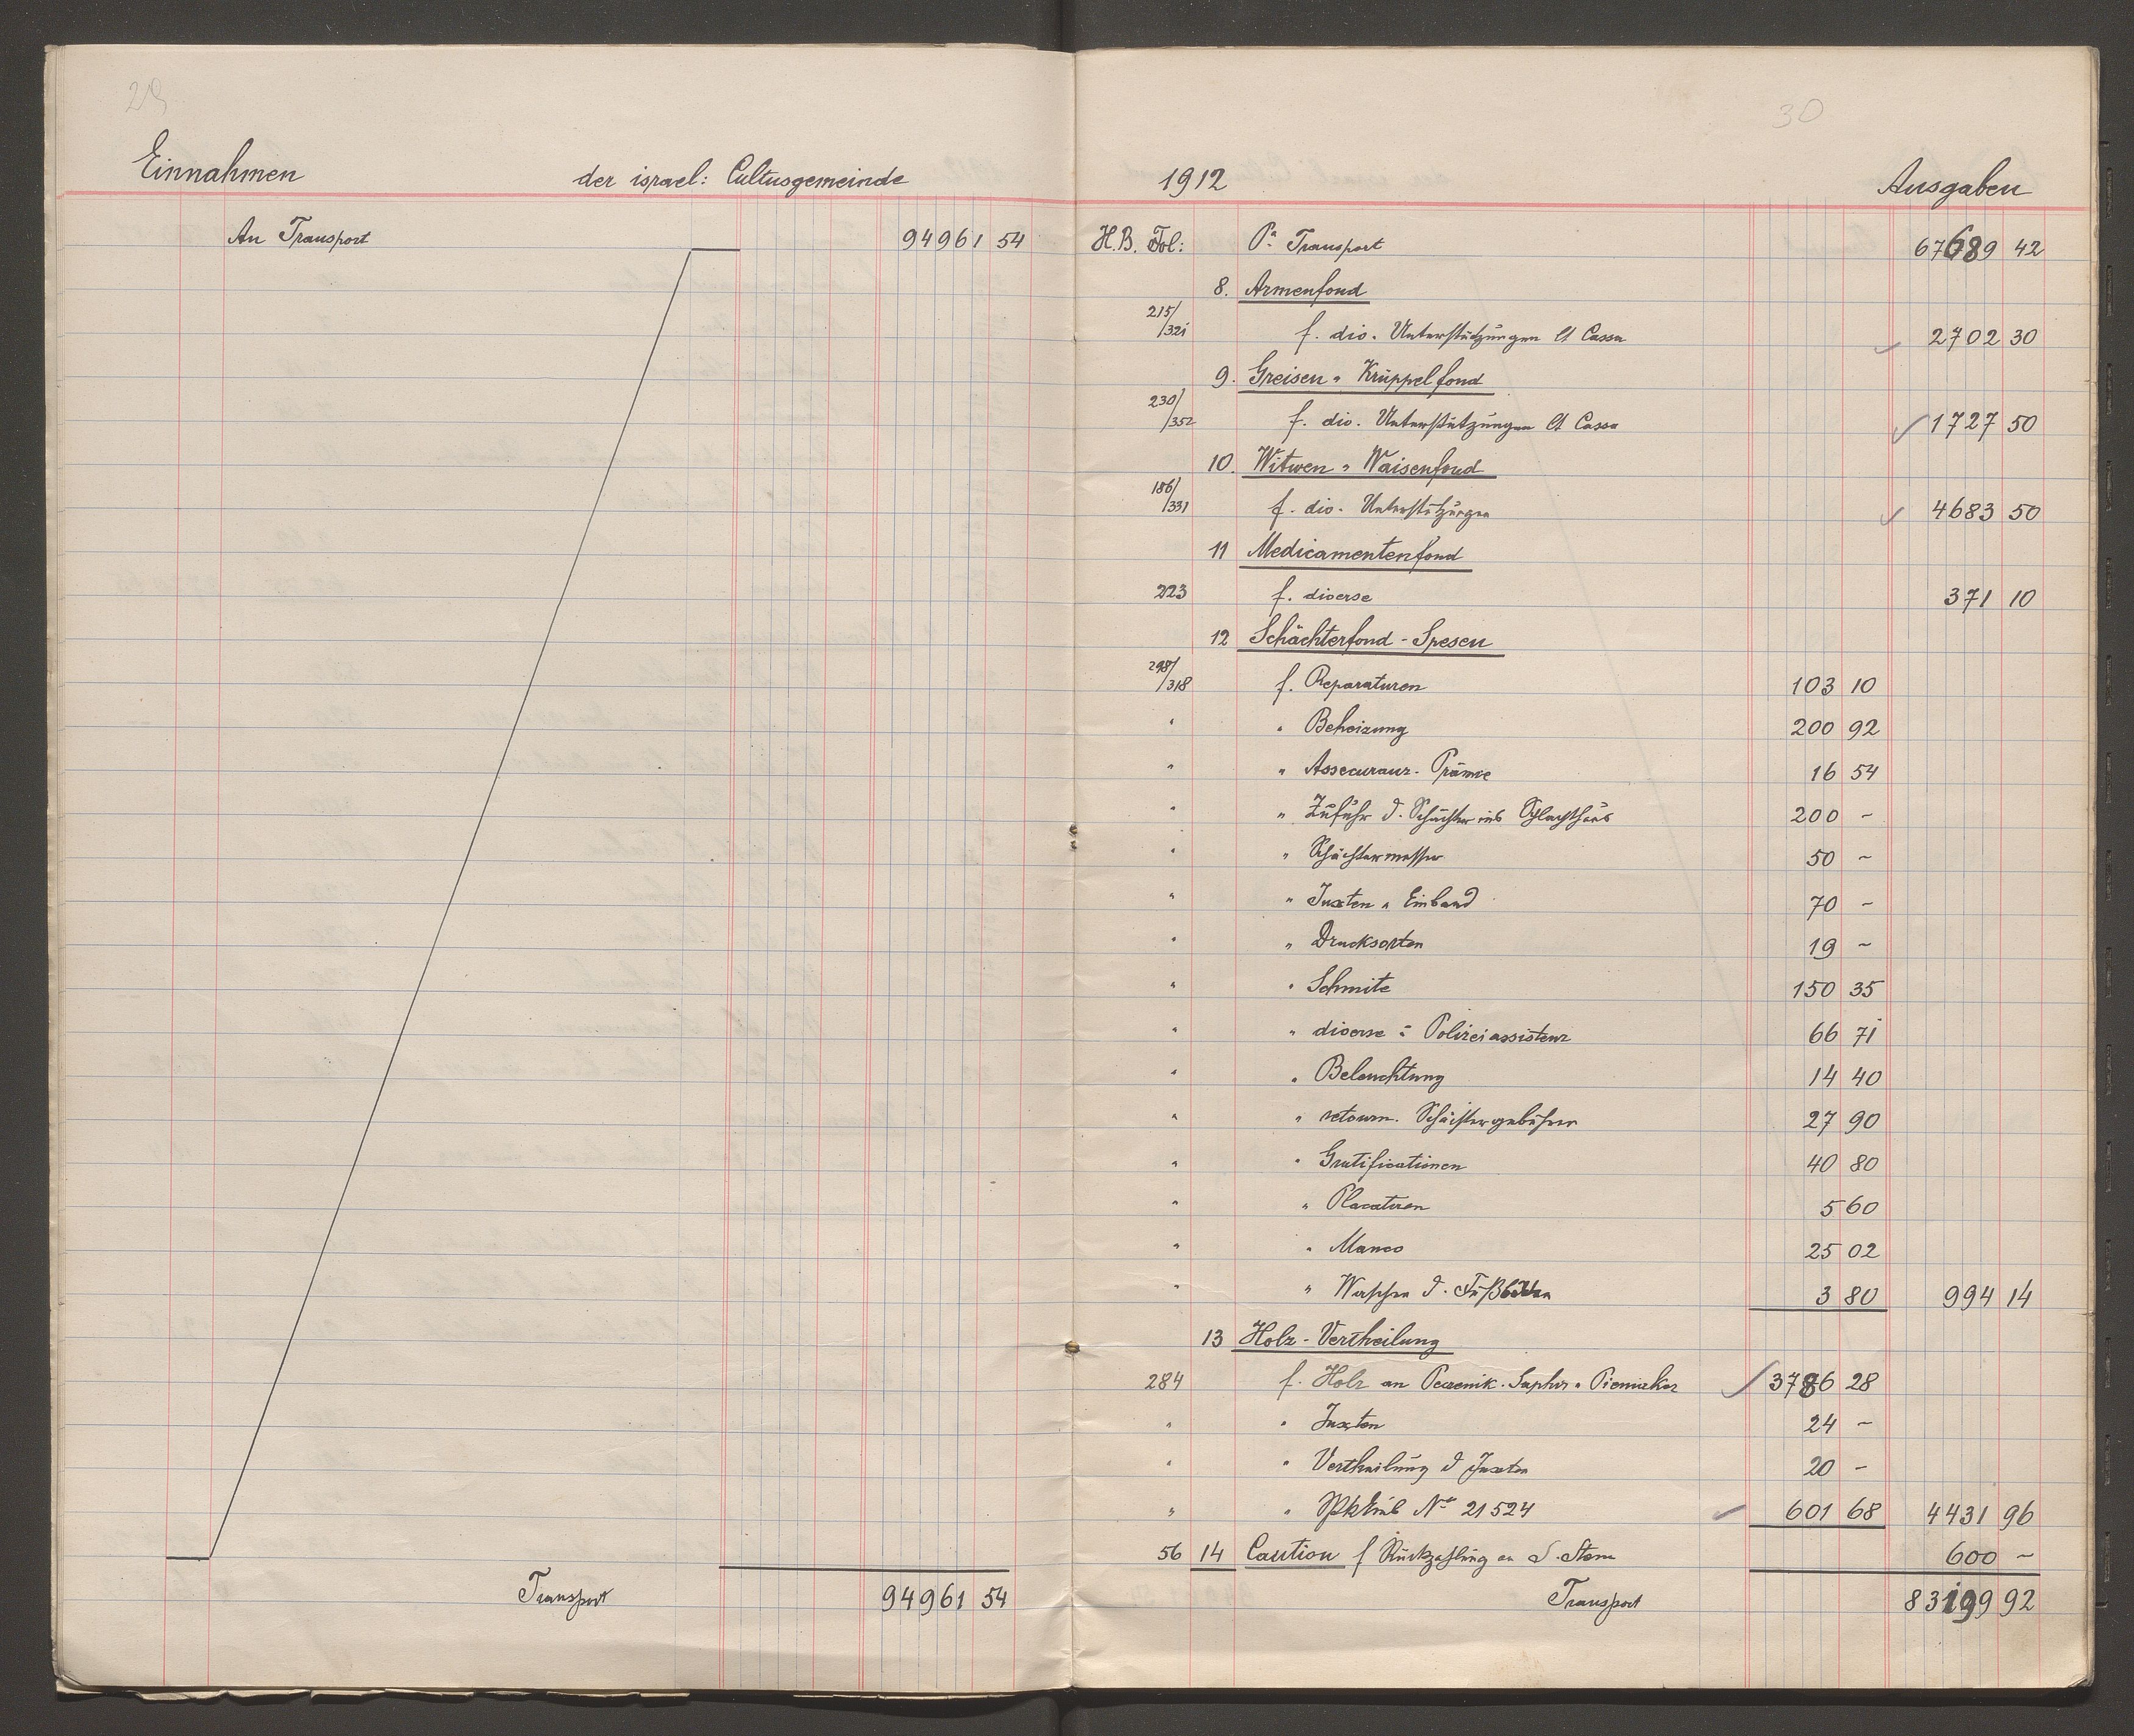 29
Einnahmen der israel: Cultusgemeinde
An Transport 94961 54
Transport 94961 54
30
1912 Ausgaben
H.B. Fol: Pr. Transport 67689 42
8. Armenfond
215/321 f. div. Unterstützungen lt Cassa 2702 30
9. Greisen " Krüppelfond
230/352 f. div. Unterstützungen lt Cassa 1727 50
10. Witwen " Waisenfond
186/331 f. div. Unterstützungen 4683 50
11 Medicamentenfond
223 f. diverse 371 10
12 Schächterfond - Spesen
298/318 f. Reparaturen 103 10
" " Beheizung 200 92
" " Assecuranz-Prämie 16 54
" " Zufuhr d. Schächter ins Schlachthaus 200 -
" " Schächtermesser 50 -
" " Juxten " Einband 70 -
" " Drucksorten 19 -
" " Schmite 150 35
" " diverse : Polizeiassistenz 66 71
" " Beleuchtung 14 40
" " retourn. Schächtergebühren 27 90
" " Gratificationen 40 80
" " Placatiren 5 60
" " Manco 25 02
" " Waschen d. Fußboden 3 80 994 14
13 Holz-Vertheilung
284 f. Holz an Peczenik. Saphir " 3786 28
" " Juxten 24 -
" " Vertheilung d Juxten 20 -
" " No 21524 601 68 4431 96
56 14 Caution f Rückzahlung an S. Stern 600 -
Transport 83199 92